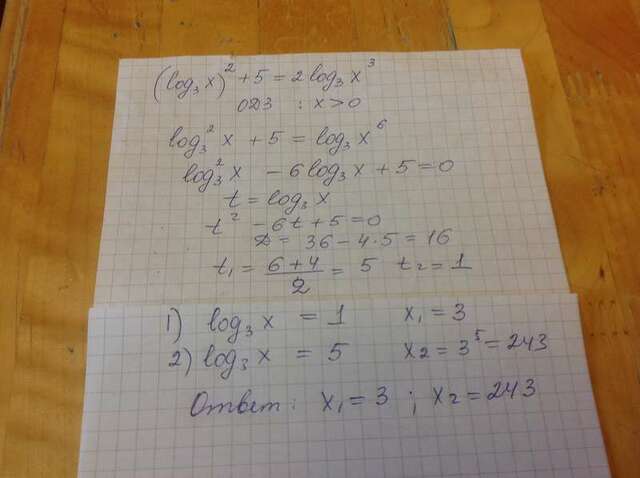 (log₃x)² + 5 = 2log₃x³
ОДЗ : x > 0
log₃²x + 5 = log₃x⁶
log₃²x - 6log₃x + 5 = 0
t = log₃x
t² - 6t + 5 = 0
D = 36 - 4·5 = 16
t₁ = (6+4)/2 = 5 t₂ = 1
1) log₃x = 1 x₁ = 3
2) log₃x = 5 x₂ = 3⁵ = 243
Ответ: x₁ = 3 ; x₂ = 243